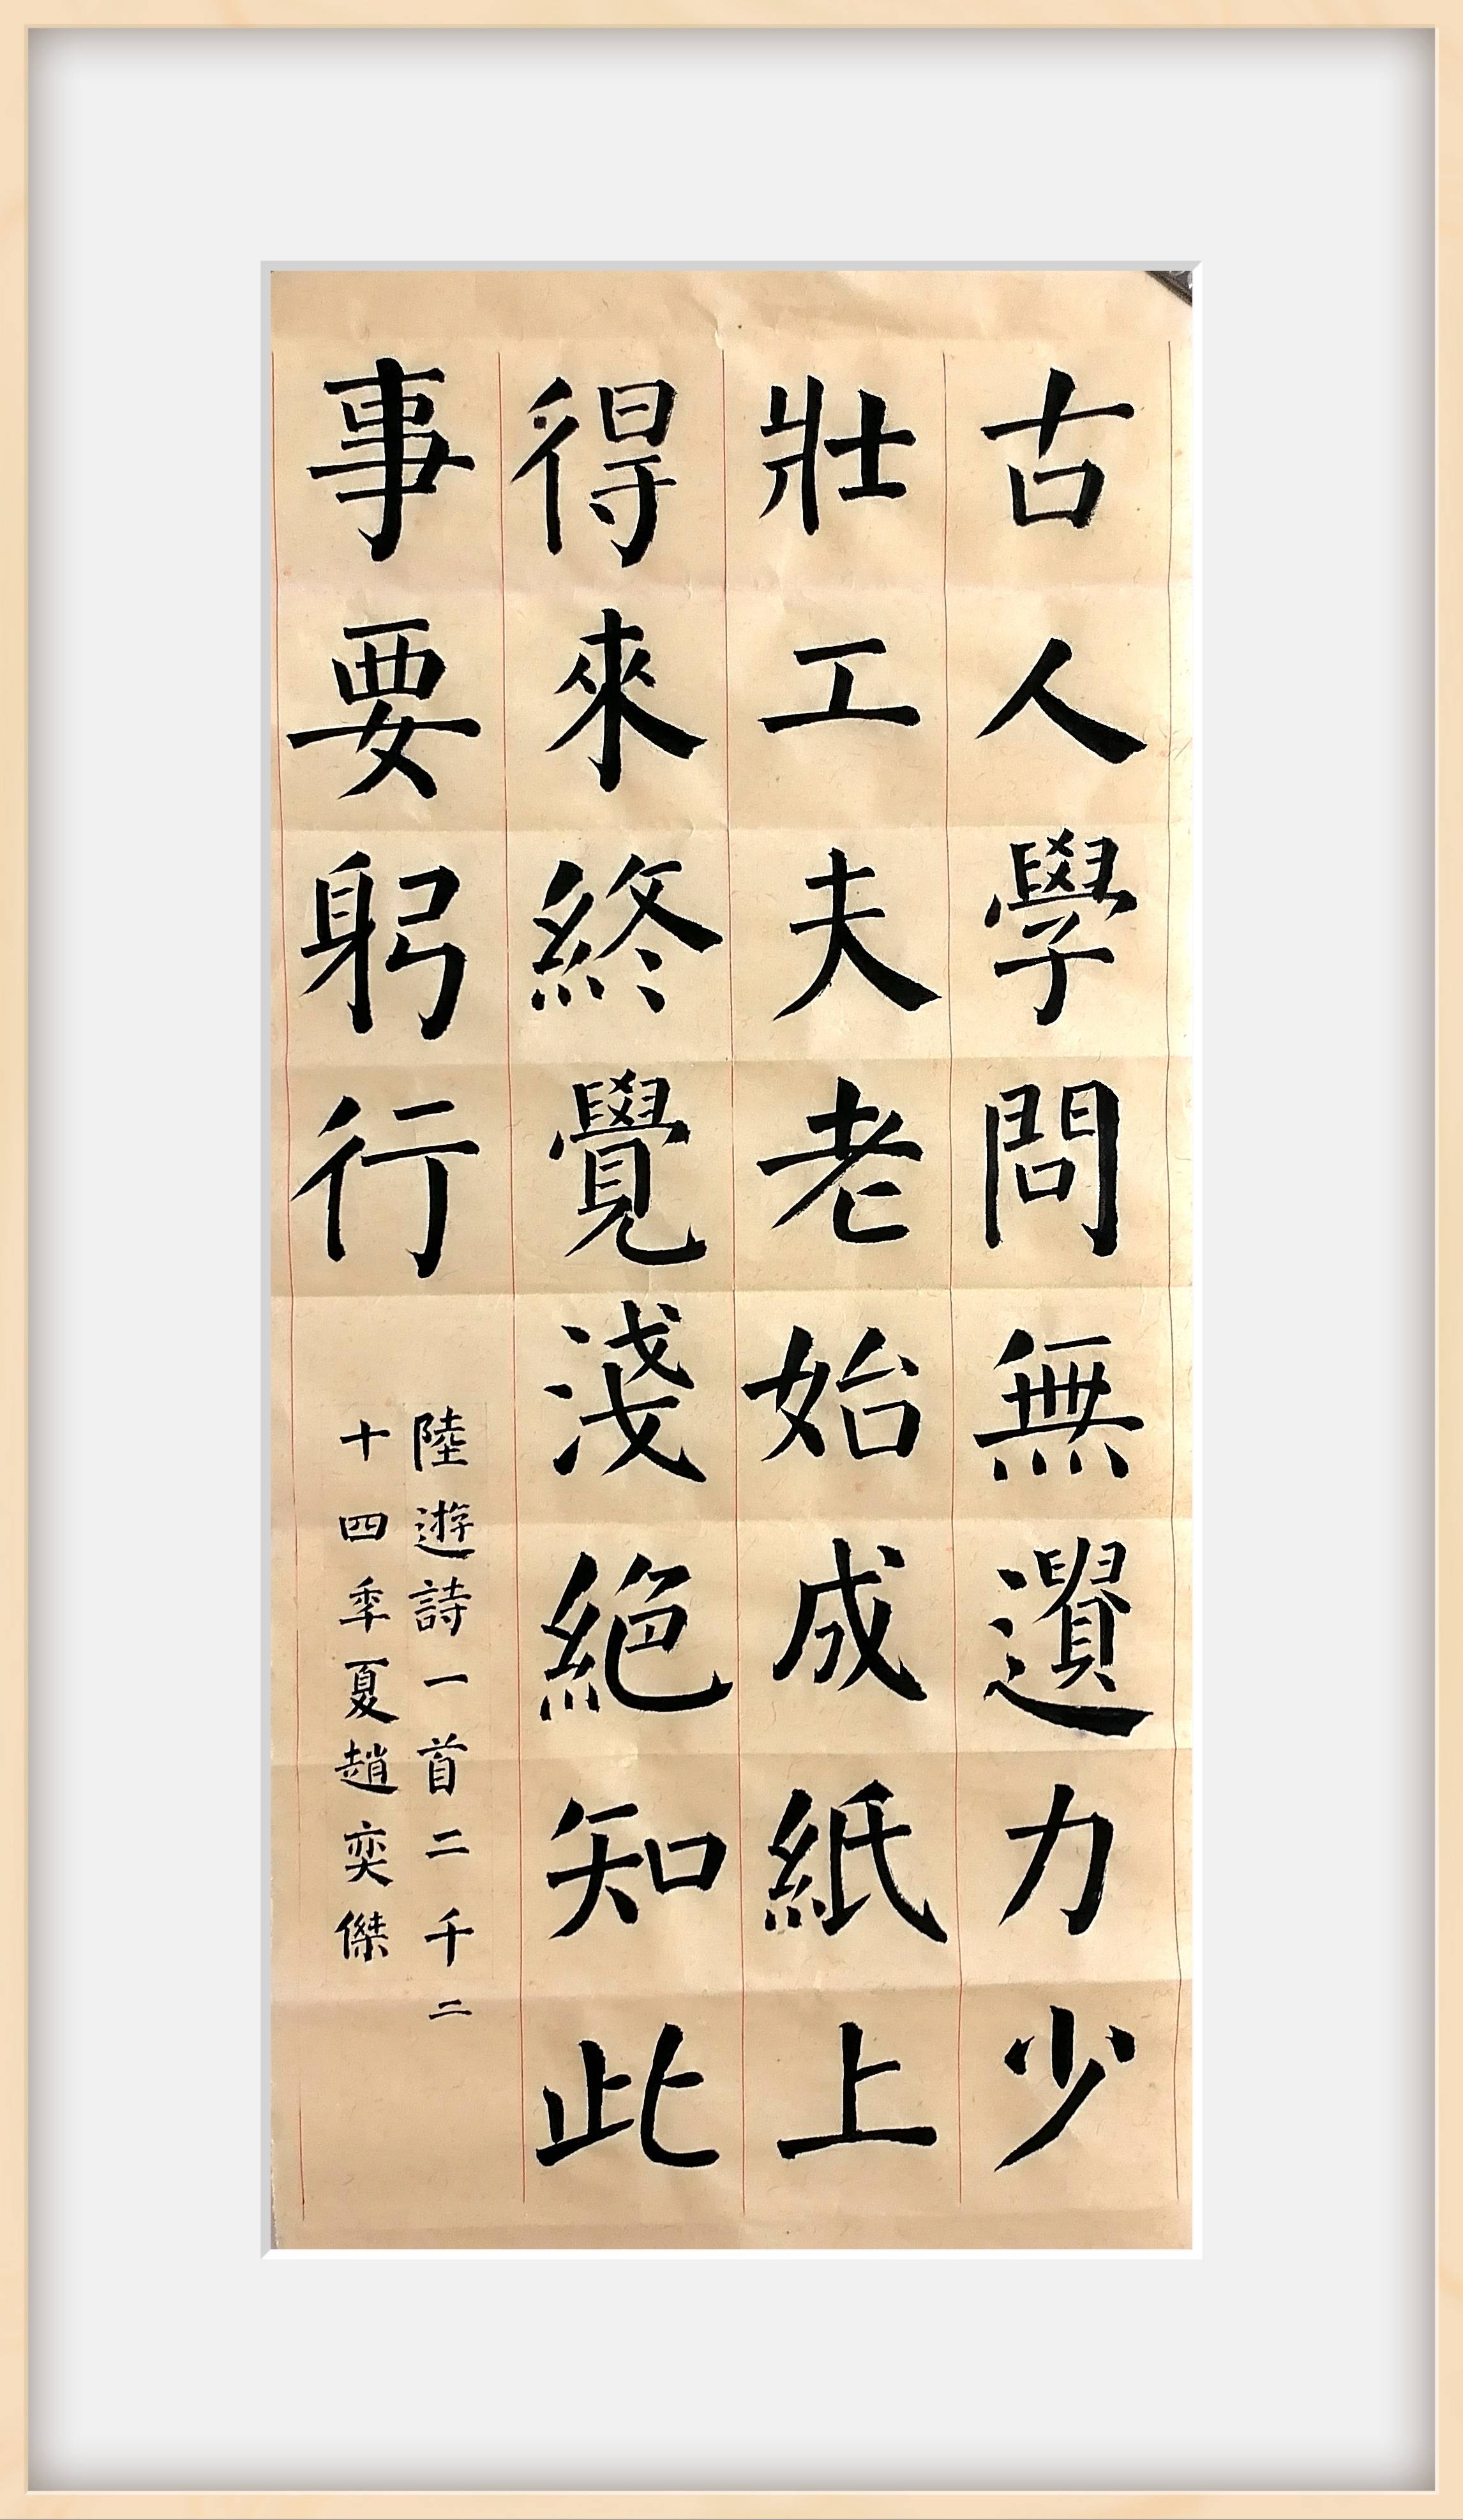 古人學問無遺力少
壯工夫老始成紙上
得來終覺淺絕知此
事要躬行
陸遊詩一首二千二
十四秊夏趙奕傑